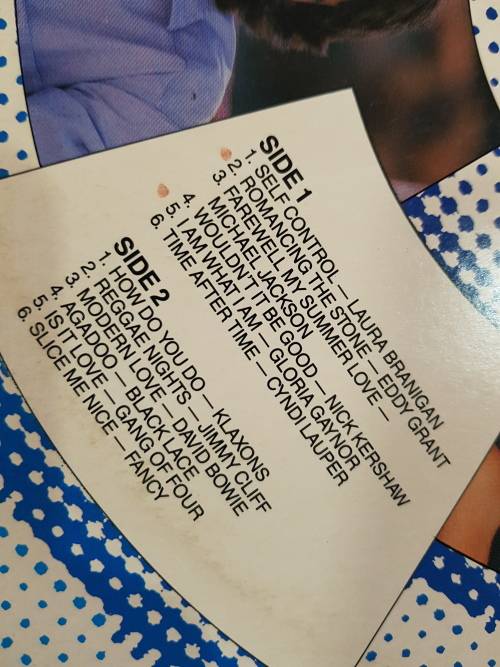 SIDE 1
1. SELF CONTROL — LAURA BRANIGAN
2. ROMANCING THE STONE — EDDY GRANT
3. FAREWELL MY SUMMER LOVE —
MICHAEL JACKSON
4. WOULDN'T IT BE GOOD — NICK KERSHAW
5. I AM WHAT I AM — GLORIA GAYNOR
6. TIME AFTER TIME — CYNDI LAUPER
SIDE 2
1. HOW DO YOU DO — KLAXONS
2. REGGAE NIGHTS — JIMMY CLIFF
3. MODERN LOVE — DAVID BOWIE
4. AGADOO — BLACK LACE
5. IS IT LOVE — GANG OF FOUR
6. SLICE ME NICE — FANCY